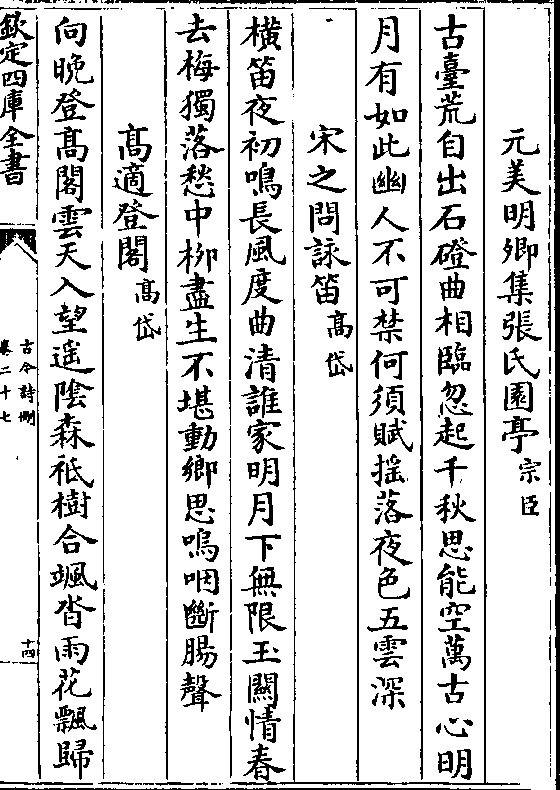 元美明卿集張氏園亭宗臣
古臺荒自出石磴曲相臨忽起千秋思能空萬古心明
月有如此幽人不可禁何須賦揺落夜色五雲深
宋之問詠笛高岱
横笛夜初鳴長風度曲清誰家明月下無限玉關情春
去梅獨落愁中栁盡生不堪動鄉思嗚咽斷腸聲
高適登閣高岱
向晩登高閣雲天入望遥陰森祇樹合颯沓雨花飄歸
欽定四庫全書
古今詩刪
卷二十七
十四